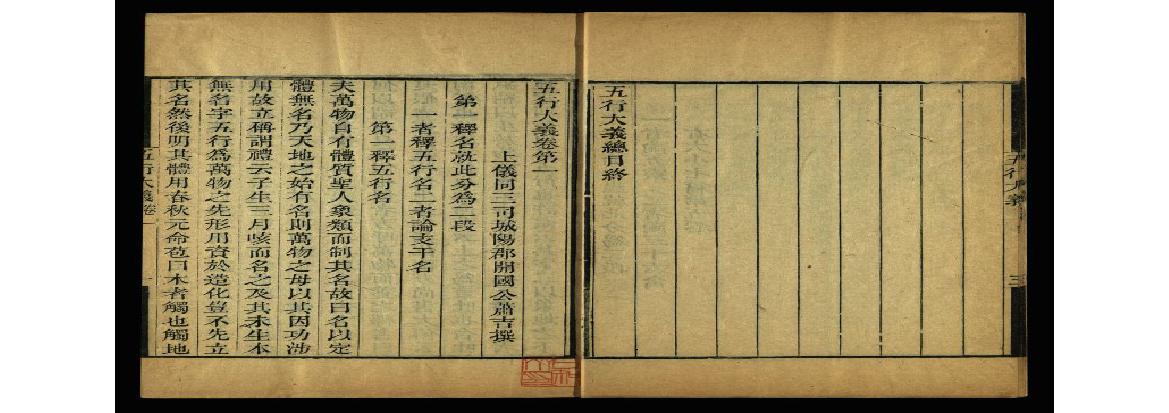 五行大義總目終
五行大義卷第一
上儀同三司城陽郡開國公蕭吉撰
第一釋名就此分為二段
一者釋五行名二者論支干名
第一釋五行名
夫萬物自有體質聖人象類而制其名故曰名以定
體無名乃天地之始有名則萬物之母以其因功涉
用故立稱謂禮云子生三月咳而名之及其未生本
無名字五行為萬物之先形用資於造化豈不先立
其名然後明其體用春秋元命苞曰木者觸也觸地
五行大義卷一